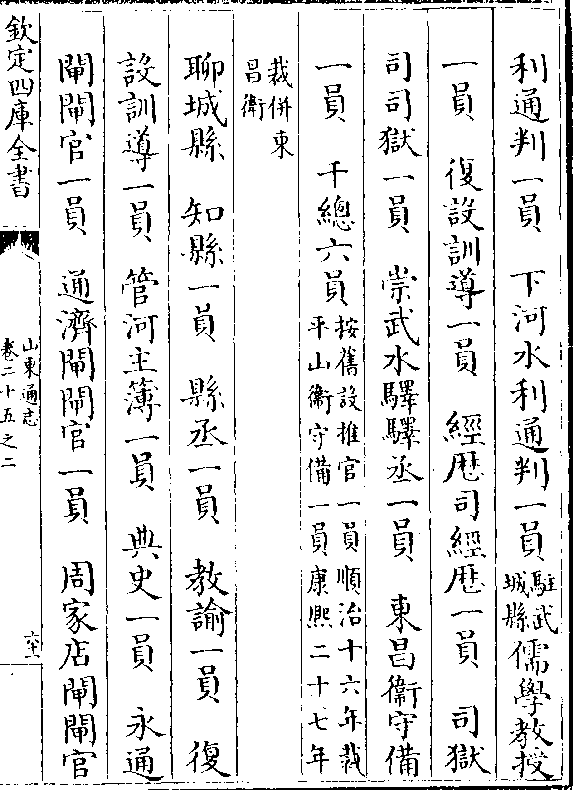 利通判一員　下河水利通判一員駐武城縣儒學教授
一員　復設訓導一員　經歷司經歷一員　司獄
司司獄一員　崇武水驛驛丞一員　東昌衞守備
一員　千總六員按舊設推官一員順治十六年裁平山衞守備一員康熙二十七年
裁併東昌衞
聊城縣　知縣一員　縣丞一員　教諭一員　復
設訓導一員　管河主簿一員　典史一員　永通
閘閘官一員　通濟閘閘官一員　周家店閘閘官
欽定四庫全書
山東通志
卷二十五之二